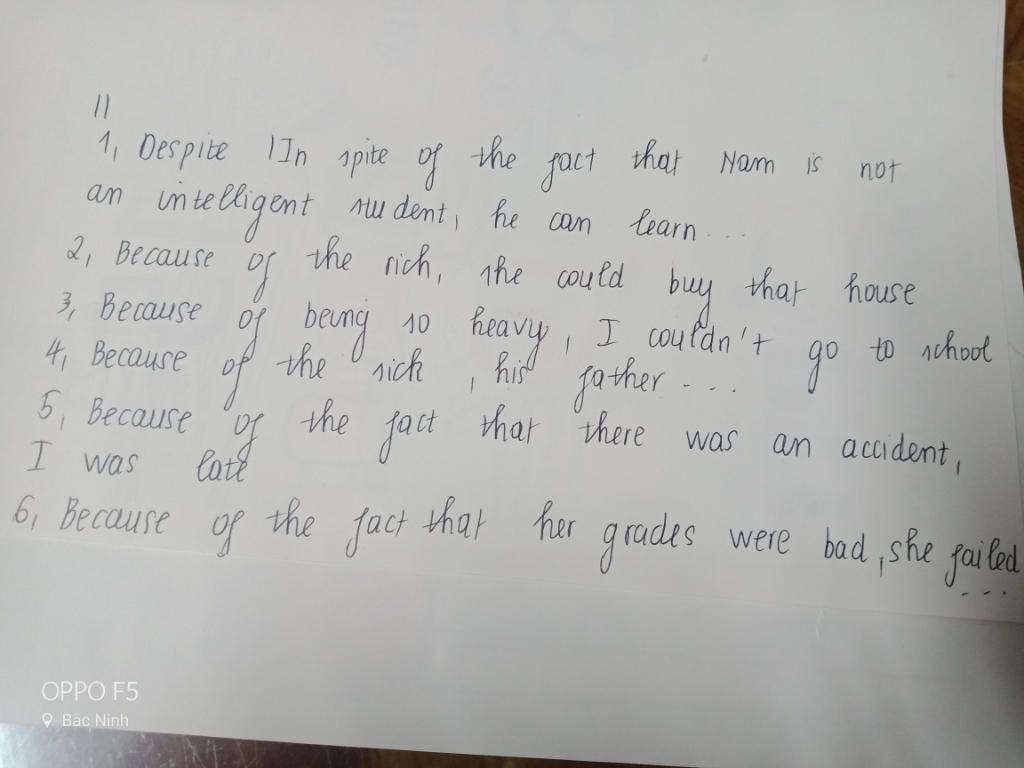 II
1, Despite / In spite of the fact that Nam is not
an intelligent student, he can learn...
2, Because of the rich, she could buy that house
3, Because of being so heavy, I couldn't go to school
4, Because of the sick, his father...
5, Because of the fact that there was an accident,
I was late
6, Because of the fact that her grades were bad, she failed
...
OPPO F5
Bắc Ninh